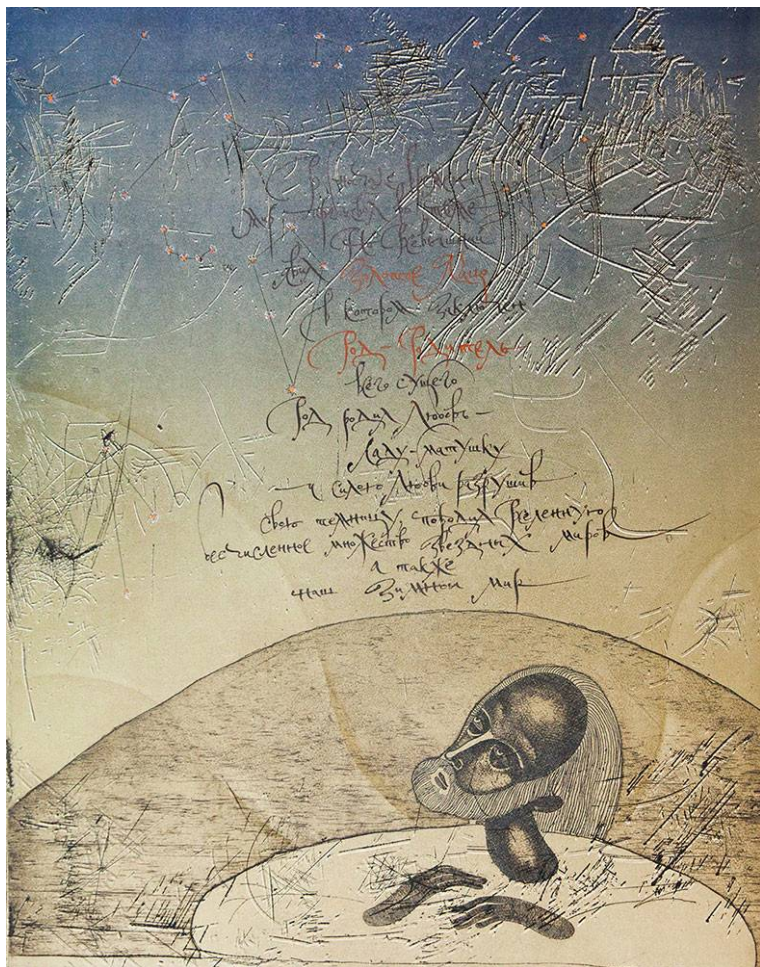 В начале времен
мир пребывал во тьме
Всевышний
явил Золотое Яйцо
в котором заключен
Род – Родитель
всего сущего
Род родил Любовь –
Ладу – матушку
и силою Любви разрушив
свою темницу, породил Вселенную
бесчисленное множество звездных миров
а также
наш Земной мир